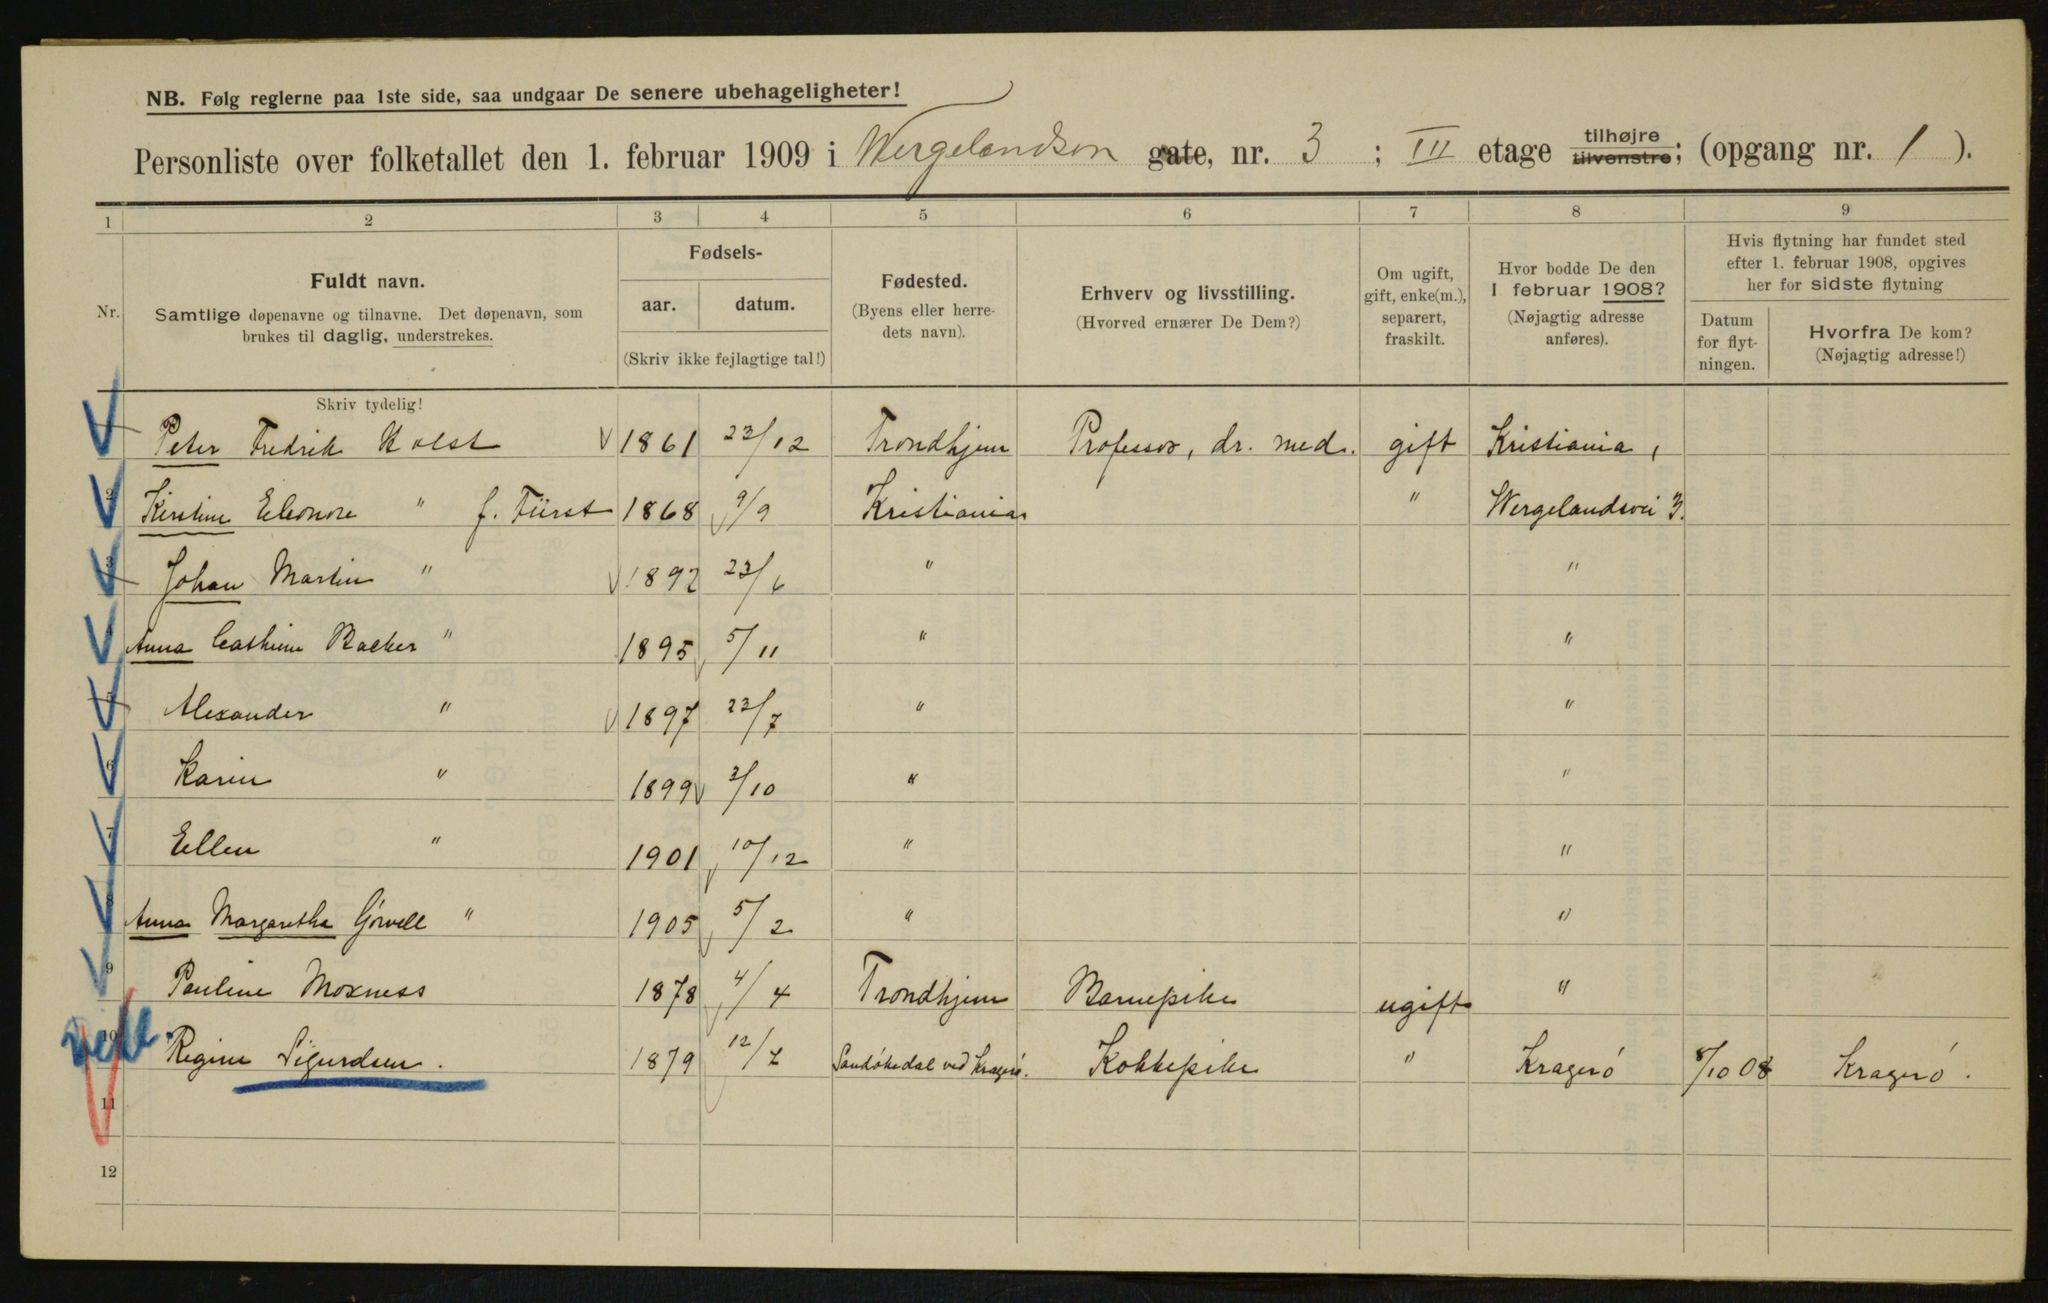 NB. Følg reglerne paa 1ste side, saa undgaar De senere ubehageligheter!
Personliste over folketallet den 1. februar 1909 i Wergelandsvn gate, nr. 3 ; III etage tilhøjre tilvenstre; (opgang nr. 1 ).
1 2 3 4 5 6 7 8 9
Nr.
Fuldt navn.
Samtlige døpenavne og tilnavne. Det døpenavn, som
brukes til daglig, understrekes.
Fødsels-
aar. datum.
(Skriv ikke fejlagtige tal!)
Fødested.
(Byens eller herre-
dets navn).
Erhverv og livsstilling.
(Hvorved ernærer De Dem?)
Om ugift,
gift, enke(m.),
separert,
fraskilt.
Hvor bodde De den
1 februar 1908?
(Nøjagtig adresse
anføres).
Hvis flytning har fundet sted
efter 1. februar 1908, opgives
her for sidste flytning
Datum
for flyt-
ningen.
Hvorfra De kom?
(Nøjagtig adresse!)
Skriv tydelig!
Peter Fredrik Holst 1861 23/12 Trondhjem Professor, dr. med. gift Kristiania,
2 Kirstine Eleonore " f. Fürst 1868 9/9 Kristiania " Wergelandsvei 3.
3 Johan Martin " 1892 23/6 " "
4 Anna Cathrine Backer " 1895 5/11 " "
5 Alexander " 1897 23/7 " "
6 Karin " 1899 3/10 " "
7 Ellen " 1901 10/12 " "
8 Anna Margaretha Gørvell " 1905 5/2 " "
9 Pauline Moxness 1878 4/4 Trondhjem Barnepike ugift "
10 Regine Sigurdsen. 1879 12/7 Sandøkedal ved Kragerø. Kokkepike " Kragerø 8/10 08 Kragerø.
11
12